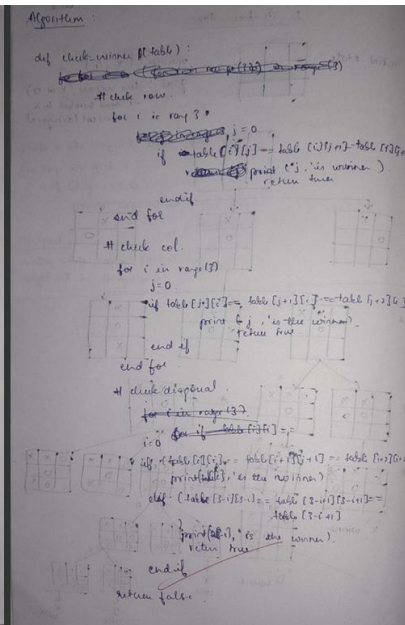 Algorithm :
def check-winner (table) :
# check row
for i in range 3 :
j = 0
if table [i][j] == table [i][j+1] == table [i][j+
print ( j, 'is winner )
return true
endif
end for
# check col.
for i in range(3)
j=0
if table [j][i] == table [j+1][i] == table [j+2][i]
print ( j, 'is the winner).
return true
end if
end for
# check diagonal
i=0
if (table [i][i] == table [i+1][i+1] == table [i+2][i+
print , 'is the winner)
elif (table [3-i][3-i] == table [3-i+1][3-i+1] ==
table [3-i+1]
print , 'is the winner).
return true
endif
return false.